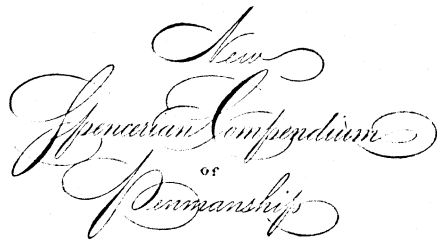 New
Spencerian Compendium
OF
Penmanship